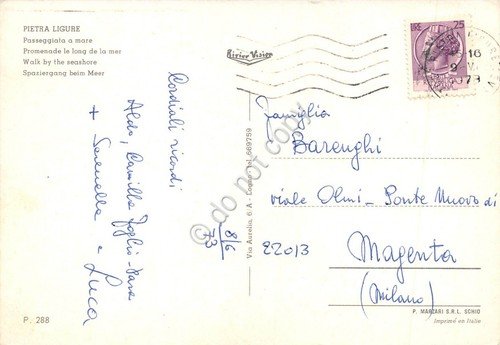 PIETRA LIGURE
Passeggiata a mare
Promenade le long de la mer
Walk by the seashore
Spaziergang beim Meer
Rivier Vision
25
16
1973
Cordiali ricordi
Aldo, Camilla
+ Serenella e Luca
8/6
73
Via Aurelia, 6.A - Loano - Tel. 669759
do not copy
Famiglia
Barenghi
viale Olmi - Ponte Nuovo di
22013 Magenta
(Milano)
P. 288
P. MARZARI S.R.L. SCHIO
Imprimé en Italie